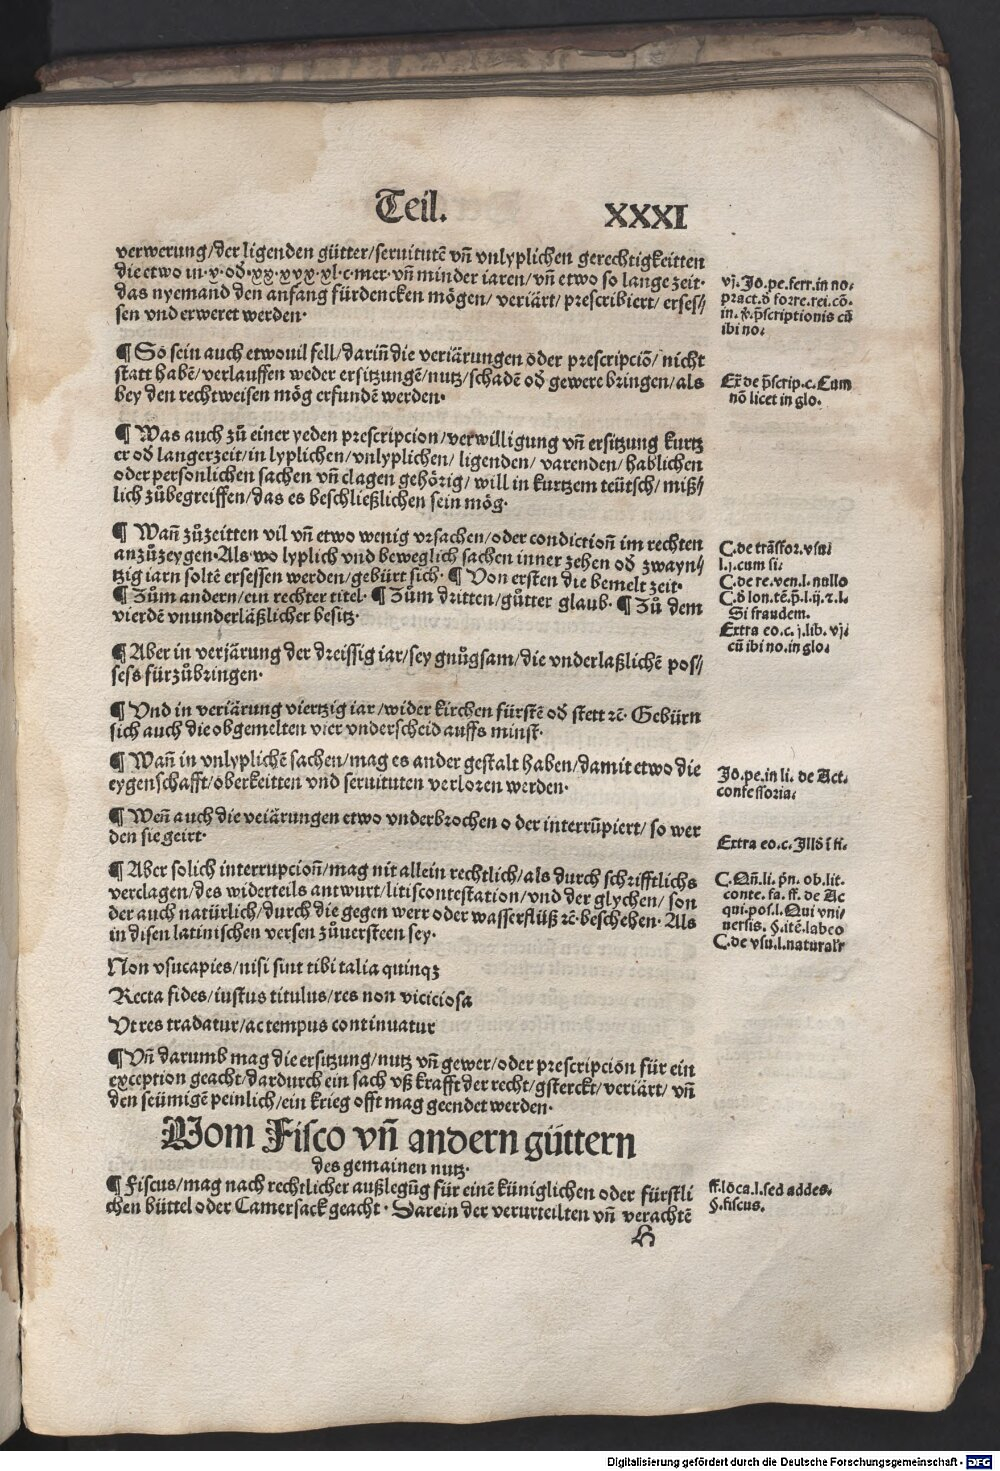 Teil. XXXI
verwerung/der ligenden gütter/seruitutē vñ vnlyplichen gerechtigkeitten
die etwo in·v·od·xx·xvx·xl·c·mer·vñ minder iaren/vñ etwo so lange zeit·
das nyemand den anfang fürdencken mögen/veriärt/prescribiert/erses⸗/
sen vnd erweret werden·
¶ So sein auch etwouil fell/dariñ die veriärungen oder prescripciō/nicht
statt habē/verlauffen weder ersitzungē/nutz/schadē od gewere bringen/als
bey den rechtweisen mög erfundē werden·
¶ Was auch zů einer yeden prescripcion/verwilligung vñ ersitzung kurtz
er od langerzeit/in lyplichen/vnlyplichen/ligenden/varenden/hablichen
oder personlichen sachen vñ clagen gehörig/will in kurtzem teütsch/miß⸗/
lich zůbegreiffen/das es beschließlichen sein mög·
¶ Wañ zůzeitten vil vñ etwo wenig vrsachen/oder condictioñ im rechten
anzůzeygen·Als wo lyplich vnd beweglich sachen inner zehen od zwayn⸗/
tzig iarn soltē ersessen werden/gebürt sich·¶ Von ersten die bemelt zeit·
¶ Zům andern/ein rechter titel·¶ Zům dritten/gůtter glaub·¶ Zů dem
vierdē vnunderläßlicher besitz·
¶ Aber in verjärung der dreissig iar/sey gnůgsam/die vnderlaßlichē pos⸗/
sess fürzůbringen·
¶ Vnd in veriärung viertzig iar/wider kirchen fürstē od stett ꝛc̄·Gebürn
sich auch die obgemelten vier vnderscheid auffs minst·
¶ Wañ in vnlyplichē sachen/mag es ander gestalt haben/damit etwo die
eygenschafft/oberkeitten vnd seruituten verloren werden·
¶ Weñ auch die veiärungen etwo vnderbrochen o der interrūpiert/so wer
den sie geirt·
¶ Aber solich interrupcioñ/mag nit allein rechtlich/als durch schrifftlichs
verclagen/des widerteils antwurt/litiscontestation/vnd der glychen/son
der auch natürlich/durch die gegen werr oder wasserflüß ꝛc̄·beschehen·Als
in disen latinischen versen zůuersteen sey·
Non vsucapies/nisi sint tibi talia quinqꝫ
Recta fides/iustus titulus/res non viciciosa
Vt res tradatur/ac tempus continuatur
¶ Vñ darumb mag die ersitzung/nutz vñ gewer/oder prescripciōn für ein
exception geacht/dardurch ein sach vß krafft der recht/gsterckt/veriärt/vñ
den seümigē peinlich/ein krieg offt mag geendet werden·
Vom Fisco vñ andern güttern
des gemainen nutz·
¶ Fiscus/mag nach rechtlicher außlegūg für einē küniglichen oder fürstli
chen büttel oder Camersack geacht·Darein der verurteilten vñ verachtē
H
vj. Jo. pe. ferr. in no⸗
pract. d̕ forre. rei. cō⸗
in. p̄scriptionis cū
ibi no.
Ex̄ de p̄scrip. c. Cum
nō licet in glo.
C. de trāsfor. vsu⸗
l. j. cum si.
C. de re. ven. l. nullo
C. d̕ lon. tē. p̄. l. ij. ꝛ. l.
Si fraudem.
Extra eo. c. j. lib. vj.
cū ibi no. in glo.
Jo. pe. in li. de Act.
confessoria.
Extra eo. c. Illd̕ ī fi.
C. Qñ. li. p̄n. ob. lit.
conte. fa. ff. de Ac
qui. pos. l. Qui vni⸗
uersis. §. itē. labeo
C. de vsu. l. naturalr
ff. lōca. l. sed addes.
§. fiscus.
Digitalisierung gefördert durch die Deutsche Forschungsgemeinschaft - DFG